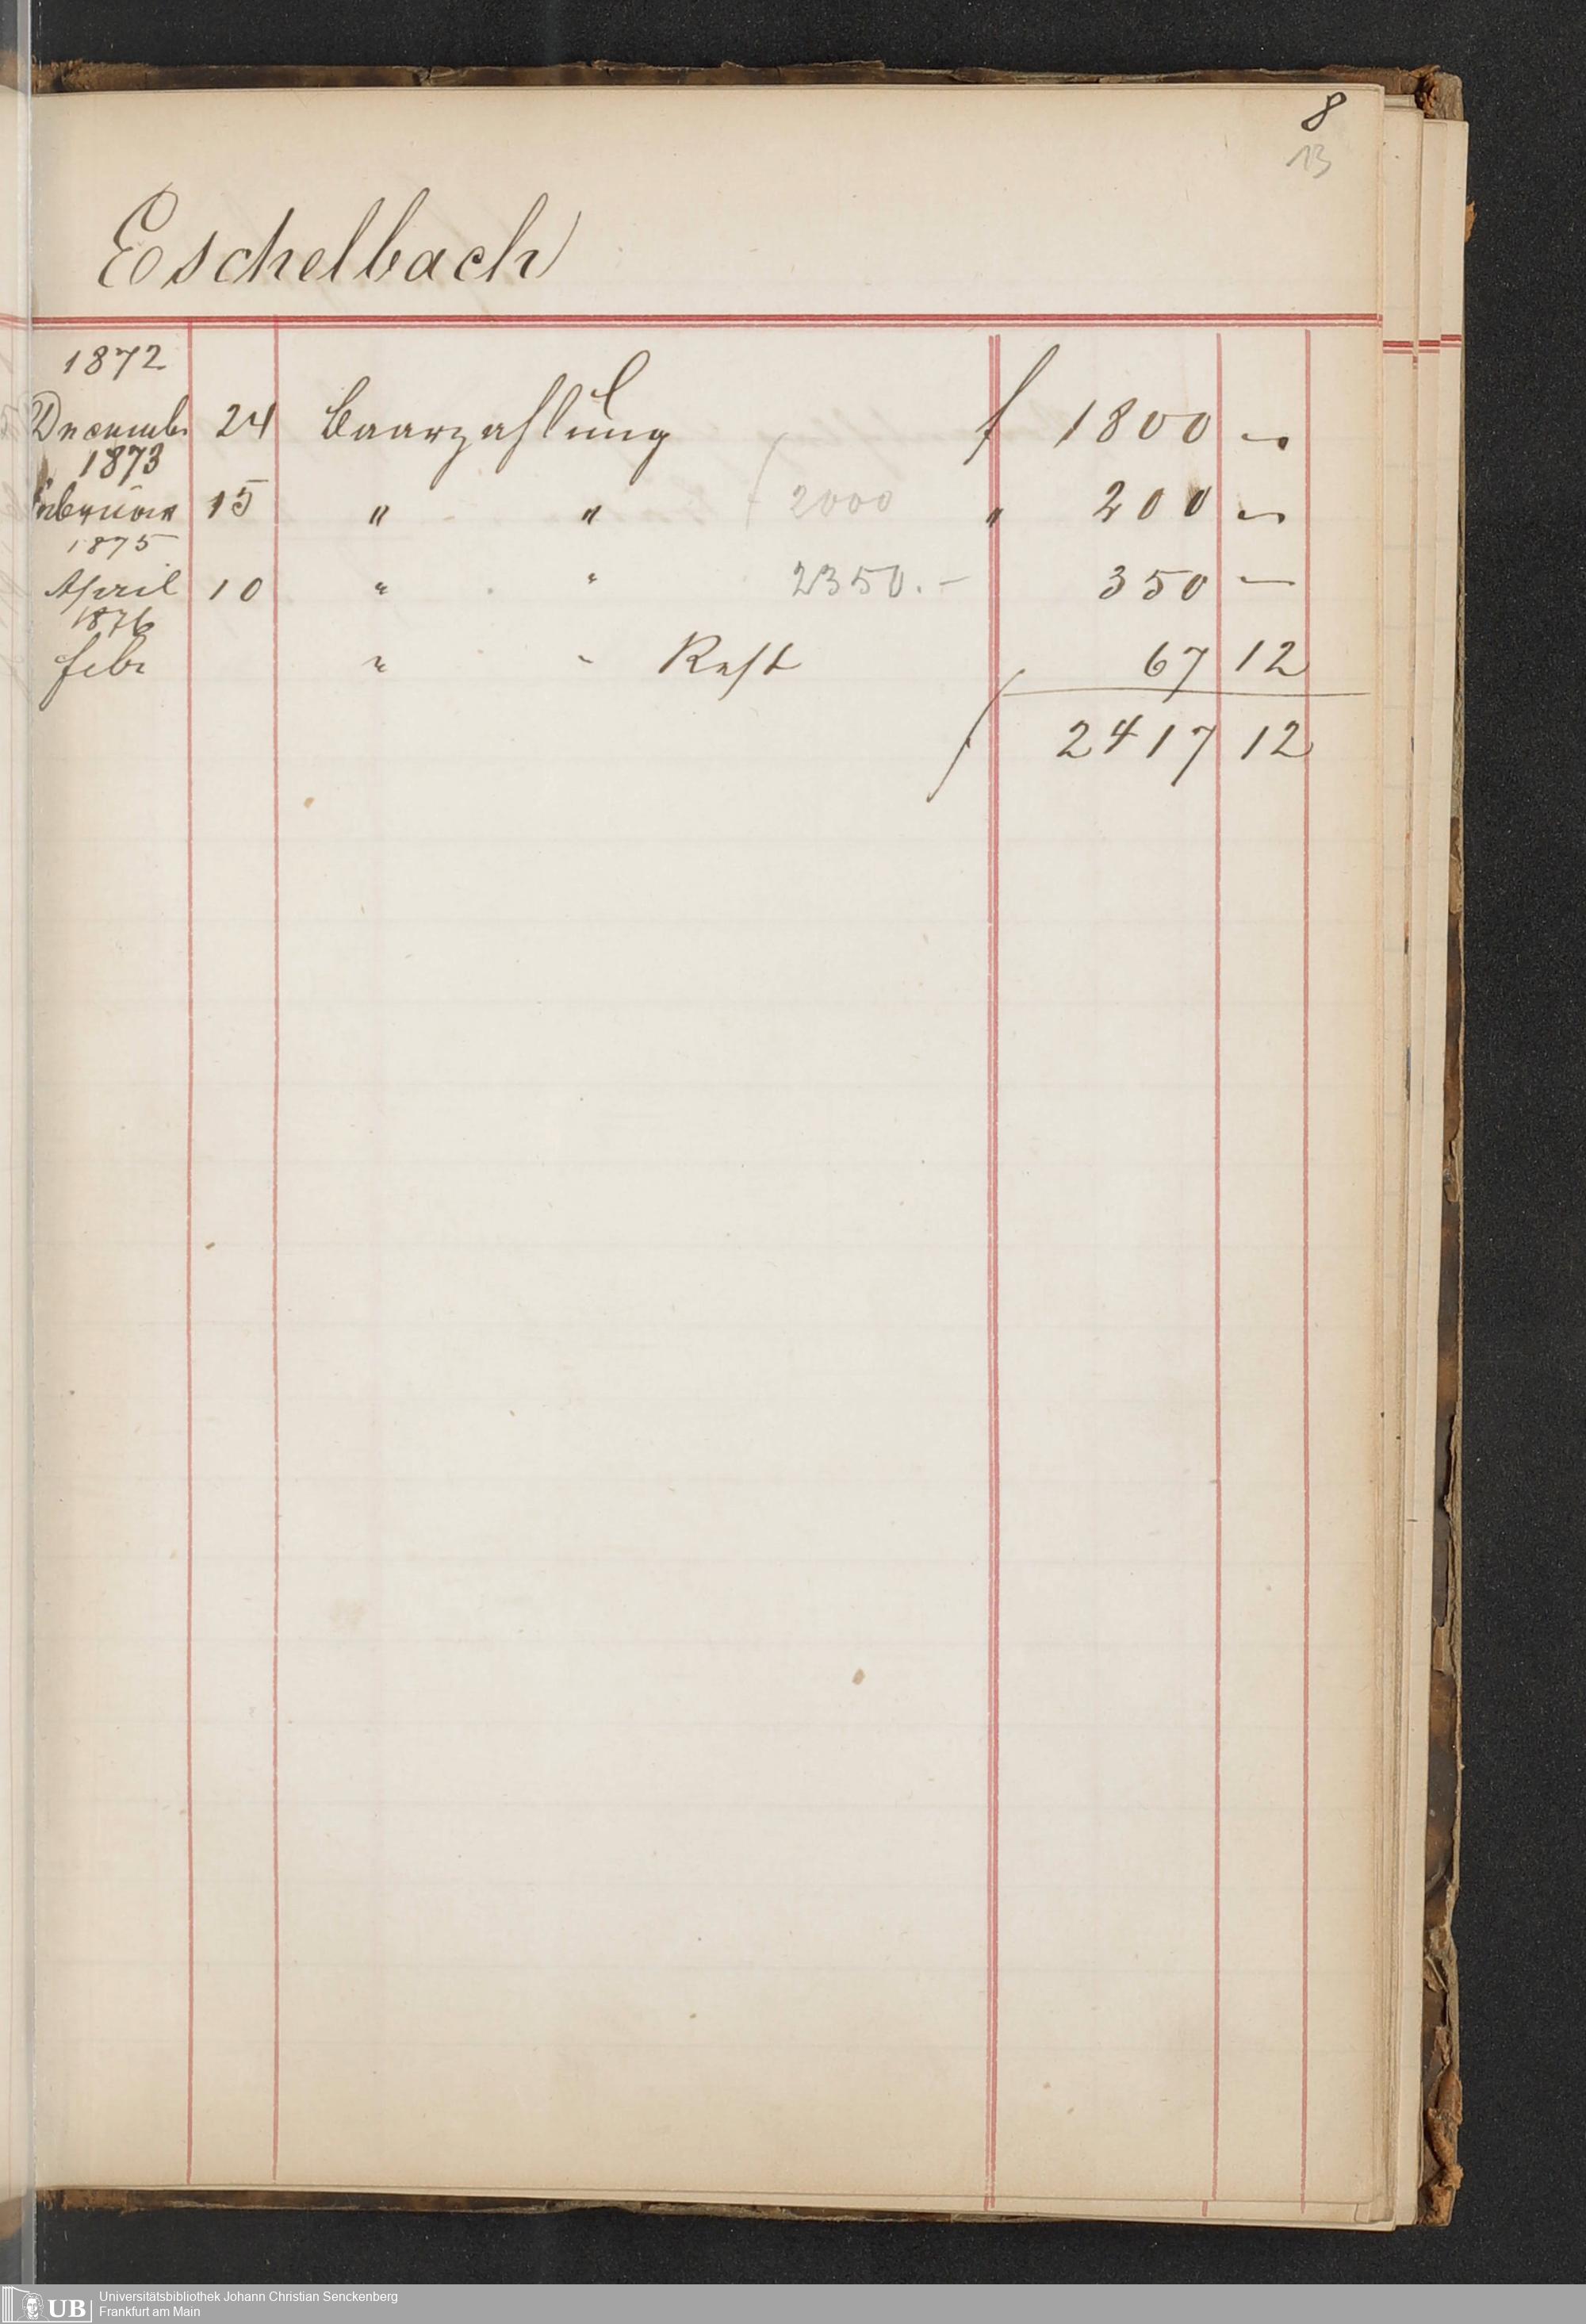 8
13
Eschelbach
1872
Decembr 24 Baarzahlung f 1800 —
1873
Februar 15 " " f 2000 " 200 —
1875
April 10 " " 2350.— 350 —
1876
Febr " " Rest 67 12
f 2417 12
UB Universitätsbibliothek Johann Christian Senckenberg
Frankfurt am Main